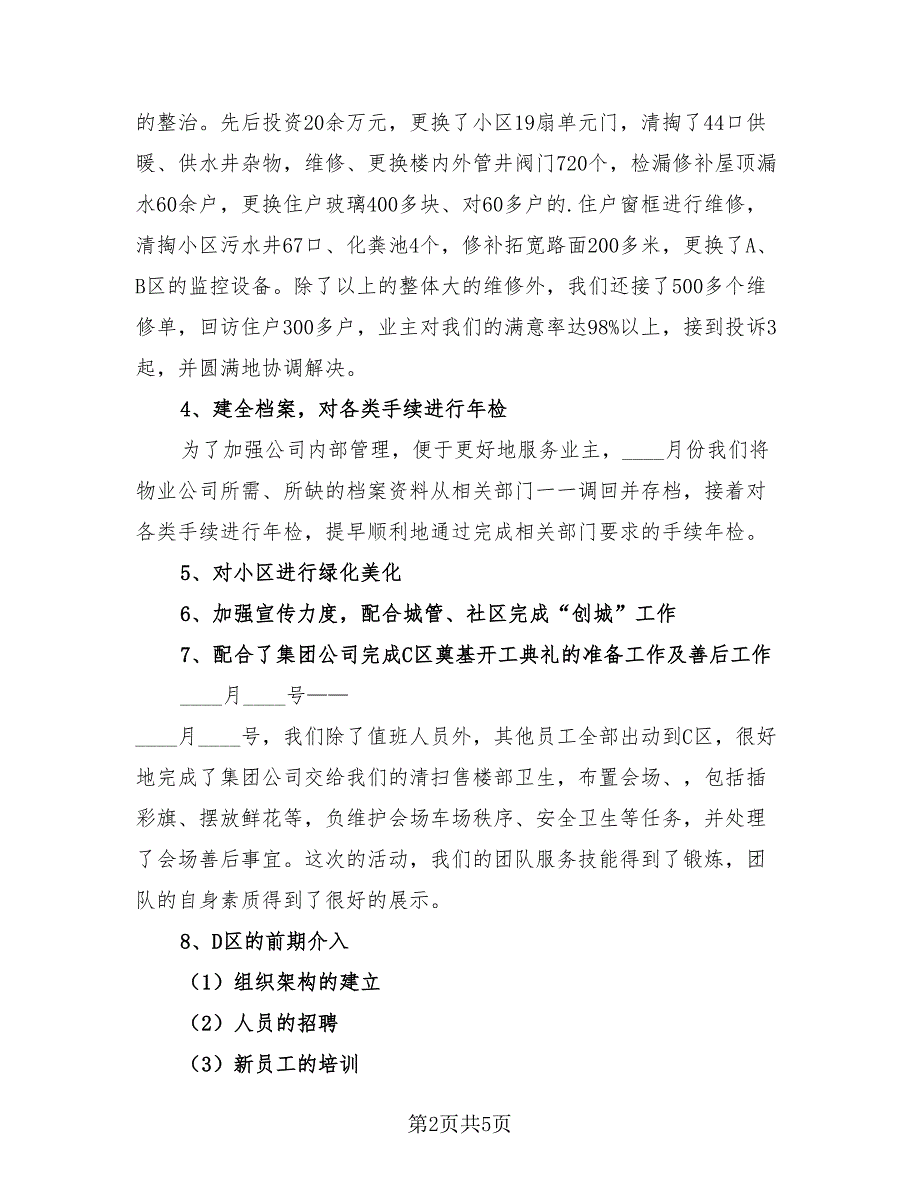 的整治。先后投资20余万元，更换了小区19扇单元门，清掏了44口供
暖、供水井杂物，维修、更换楼内外管井阀门720个，检漏修补屋顶漏
水60余户，更换住户玻璃400多块、对60多户的.住户窗框进行维修，
清掏小区污水井67口、化粪池4个，修补拓宽路面200多米，更换了A、
B区的监控设备。除了以上的整体大的维修外，我们还接了500多个维
修单，回访住户300多户，业主对我们的满意率达98%以上，接到投诉3
起，并圆满地协调解决。
4、建全档案，对各类手续进行年检
为了加强公司内部管理，便于更好地服务业主，____月份我们将
物业公司所需、所缺的档案资料从相关部门一一调回并存档，接着对
各类手续进行年检，提早顺利地通过完成相关部门要求的手续年检。
5、对小区进行绿化美化
6、加强宣传力度，配合城管、社区完成“创城”工作
7、配合了集团公司完成C区奠基开工典礼的准备工作及善后工作
____月____号——
____月____号，我们除了值班人员外，其他员工全部出动到C区，很好
地完成了集团公司交给我们的清扫售楼部卫生，布置会场、，包括插
彩旗、摆放鲜花等，负维护会场车场秩序、安全卫生等任务，并处理
了会场善后事宜。这次的活动，我们的团队服务技能得到了锻炼，团
队的自身素质得到了很好的展示。
8、D区的前期介入
（1）组织架构的建立
（2）人员的招聘
（3）新员工的培训
第2页共5页